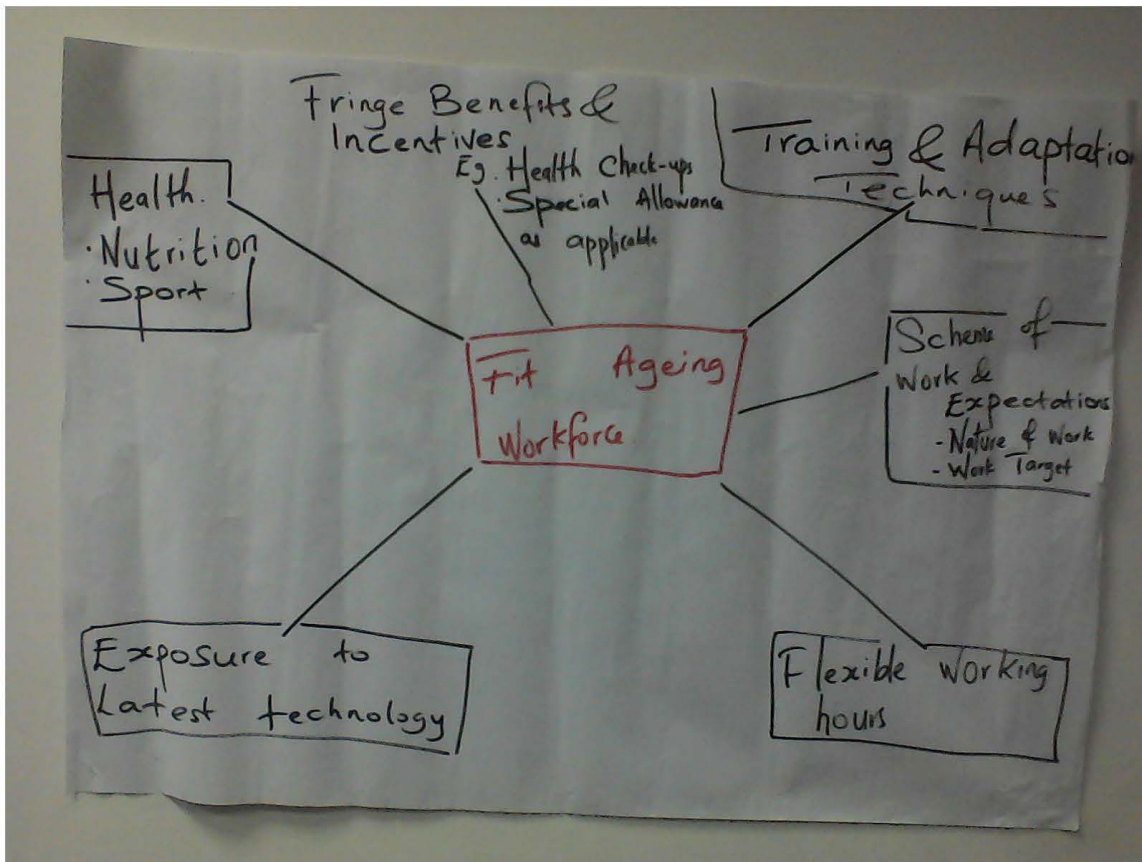 Fringe Benefits &
Incentives
Eg. Health Check-ups
· Special Allowance
as applicable
Training & Adaptation
Techniques
Health.
· Nutrition
· Sport
Scheme of
Work &
Expectations
- Nature of Work
- Work Target
Fit Ageing
Workforce
Exposure to
Latest technology
Flexible Working
hours